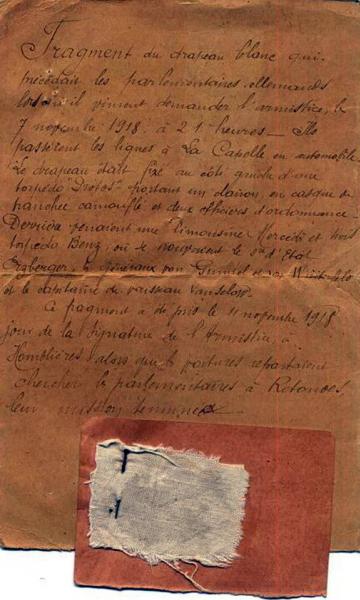 Fragment du drapeau blanc qui
précédait les parlementaires allemands
lorsqu'il vinrent demander l'armistice, le
7 novembre 1918 à 21 heures — Ils
passèrent les lignes à La Capelle en automobile
Le drapeau était fixé au côté gauche d'une
torpédo portant un clairon, en casque de
tranchée camouflé et deux officiers d'ordonnance
Derrière venaient une limousine Mercédès et trois
torpédo Benz, où se trouvaient le d'Etat
Erzberger, généraux von et von
et le capitaine de vaisseau Vanselow
Ce fragment a été pris le 11 novembre 1918
jour de la signature de l'Armistice à
Homblières alors que voitures repartaient
chercher les parlementaires à Rethondes
leur mission terminée